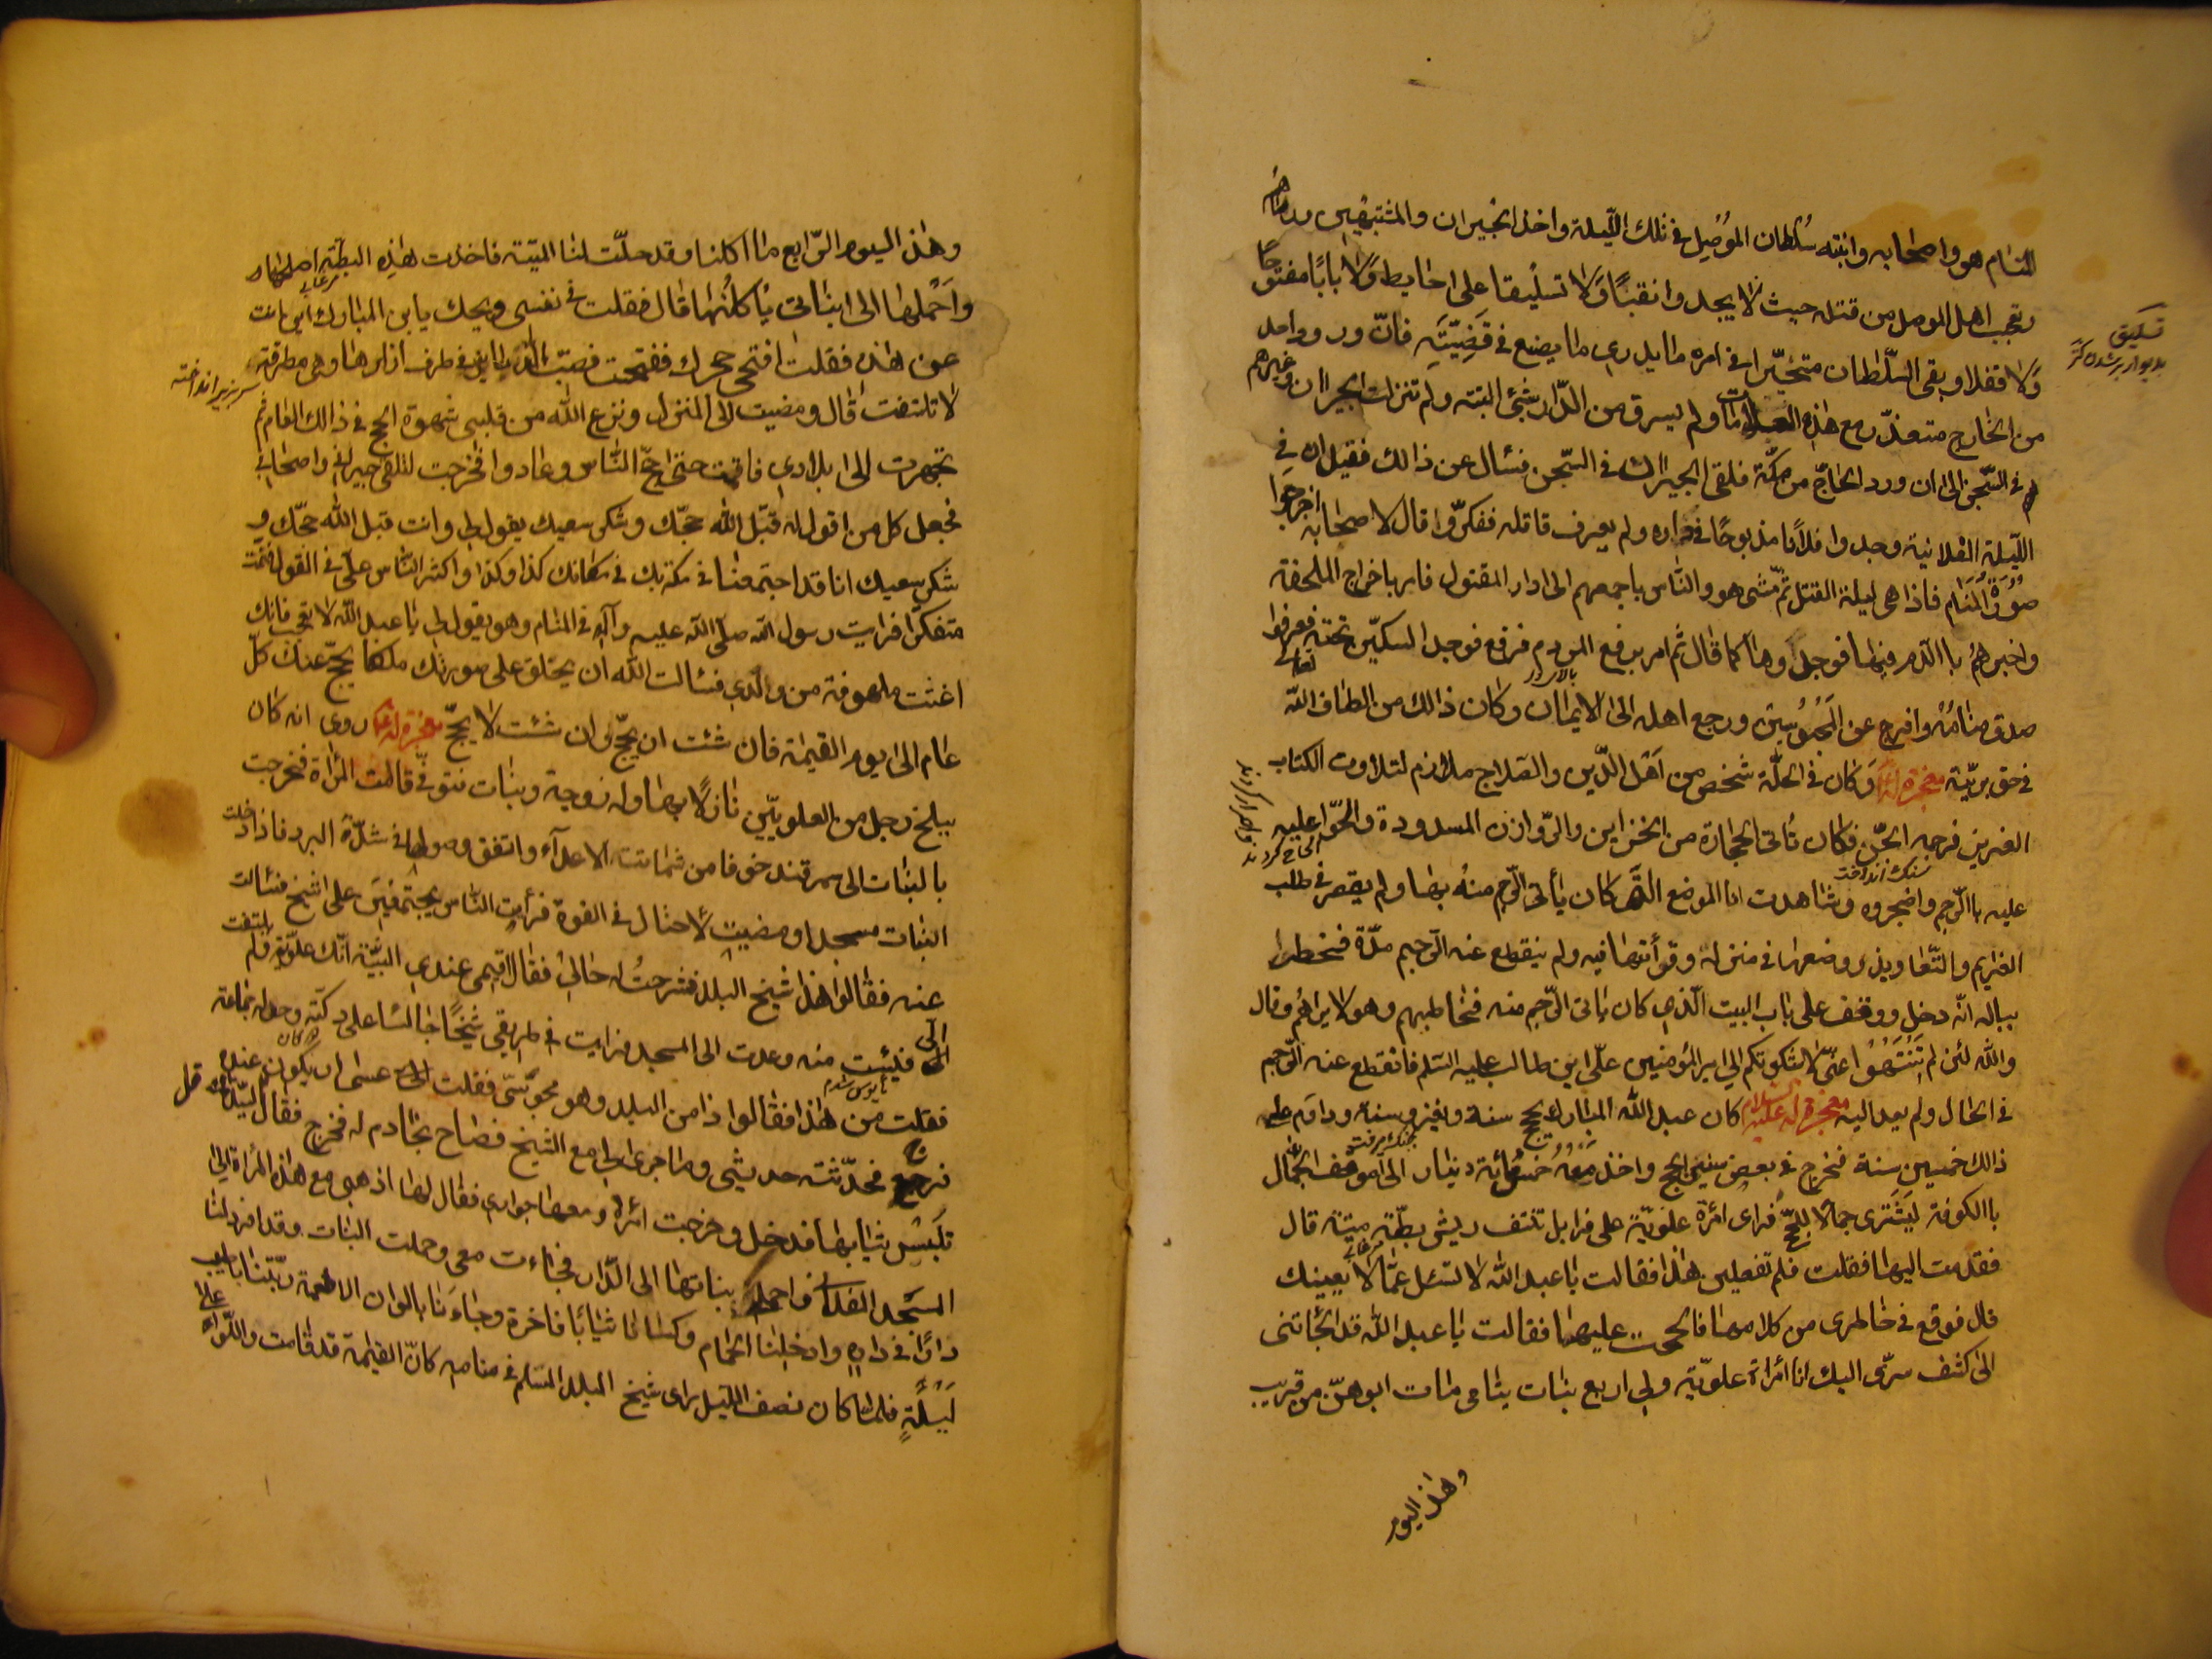 المنام هو واصحابه وانتبه سُلطان المُوصِل فی تلك اللّیلة واخذ الجیران والمشتبهین ورماهم
وتعجب اهل الموصل من قتله حیث لا یجدوا نقبًا وَلا تسلُیقا علی الحایط وَلا بابًا مفتوحًا
وَلا قفلا وبقی السّلطان متحیّرا فی امره ما یدری ما یصنع فی قَضِیّتَه فانّ ورود واحد
من الخارج متعذّر مع هٰذه العلامات ولم یسرق من الدّار شئ البتته ولم تنزلت الجیران وغیرهم
فی السّجن الی ان ورد الحاجّ من مکّة فلقی الجیران فی السّجن فسأل عن ذالك فقیل له فی
اللّیلة الفلانیة وجدوا فلانًا مذبوحًا فی داره ولم یعرف قاتله ففکّر وقال لاصحابه اخرجوا
صُورَةُ المَنَام فاذا هی لیلة القتل ثمّ مشی هو والنّاس باجمعهم الی دار المقتول فامر باخراج الملحفة
واخبرهُم بالدّم فیها فوجدوها کما قال ثم امر برفع المردم فرفع فوجد السکیّن تحته فعرفوا
صدق منامه وافرج عن المحبوسین ورجع اهله الی الایمان وکان ذالك من الطاف اللّه تعالی
فی حق بریّته معجزة له ع وَکان فی الحلّة شخص من اَهْل الدّین والصّلاح ملازم لتلاوت الکتاب
العزیز فرجمه الجنّ فکان تاتی الحجارة من الخزاین والرّوازن المسدودة والحّوا علیه
علیه بالرّجم واضجروه وشاهدت انا الموضع الّتی کان یأتی الرّجم منهُ بها ولم یقصر فی طلب
العزایم والتّعاویذ ووضعها فی منزله وقرأتها فیه ولم ینقطع عنه الرّجم مدّة فخطر
بباله انّه دخل ووقف علی باب البیت الّذی کان یاتی الرّجم منه فخاطبهم وهو لا یراهُم وقال
واللّه لئن لم تَنْتَهُوا عنّی لاشکونّکم الی امیر المؤمنین علّی ابن طالب علیه السّلام فانقطع عنه الرّجم
فی الحال ولم یعد الیه معجزة له علیه السلام کان عبد اللّه المبارك یحج سنة ویغزو سنة ودام علی
ذالك خمسین سنة فخرج فی بعض سنین الحج واخذ مَعَهُ خمسمُائة دینار الی موقف الجمال
بالکوفة لیَشتَری جمالا للحّجّ فرای امرُة علویّة علی مزابل تنتف ریش بطّة میتة قال
فقدمت الیها فقلت فلم تفعلین هٰذا فقالت یا عبد اللّه لا تسئل عمّا لا یعینك
قال فوقع فی خاطری من کلامها فالححت علیها فقالت یا عبد اللّه قد الجأتنی
الی کشف سرّی الیك انا امُراة علویّة ولی اربع بنات یتامی مات ابوهنّ من قریب
وهٰذ الیوم
تسلیق
بدیوار بر شدن کنز
سنك انداخت
الحاح کردند
مرغابی
وهٰذ الیوم الرّابع ما اکلنا وقد حلّت لنا المیّتة فاخذت هٰذِه البطّة اصلحها
واَحْمِلها الی ابناتی یاُکلُنَها قال فقلت فی نفسی ویحك یابن المبارك این انت
مرغابی
عن هٰذه فقلت افتحی حجرك ففتحت فصبّت الدّنانیر فی طرف ازارها وهی مطرقة
سر بزیر انداخته
لا تلتفت قال ومضیت الی المنزل ونزع اللّه من قلبی شهوة الحج فی ذالك العام ثم
تجهزت الی بلادی فاقمت حتی حجّ النّاس وعادوا فخرجت لتلقی جیرانی واصحابی
فجعل کل من اقول له قبّل اللّه حجّك وشکر سعیك یقول لی وانت قبل اللّه حجّك و
شکر سعیك انا قد اجتمعنا فی مکة بك فی مکانك کذا وکذا واکثر النّاس علّی فی القول فنمت
متفکرّا فرایت رسول اللّه صلّی اللّه علیه وآله فی المنام وهو یقول لی یا عبد اللّه لا تعجب فانك
اغثت ملهوفة من ولدی فسألت اللّه ان یخلق علی صورتك ملکا یحجّ عنك کلّ
عام الی یوم القیمة فان شئت ان تحجّ وان شئت لا تحجّ معجزة له ع روی انه کان
ببلخ رجل من العلویّین نازلًا بها وله زوجة وبنات فتوفّی قالت المرأة فخرجت
بالبنات الی سمرقند خوفا من شماتة الاعدآء واتفق وصولی فی شدّة البرد فاذا دخلت
البنات مسجدا ومضیت لاحتال فی القوة فرأیت النّاس یجتمعین علی شیخ فسألت
عنه فقالوا هٰذا شیخ البلد فشرحتُ له حالی فقال اقیمی عندی البیّنة انّك علویّة ولم یلتفت
الیّ فیئست منه وعدت الی المسجد فرایت فی طریقی شیخًا جالسًا علی دکّة وحوله جماعة
مأیوس شدم
فقلت من هٰذا فقالوا ذا من البلد وهو مجوسّی فقلت عسی ان یکون عنده
فحدّثته حدیثی وما جری لی مع الشیخ فصاح بخادم له فخرج فقال لسیّدتك قل
تلبس ثیابها فدخل وخرجت امرُة ومعها جواری فقال لها اذهبی مع هٰذه المرأة الی
المسجد الفلانی واحملی بناتها الی الدّار فجاءت معی وحملت البنات وقد افرد لنا
دارًا فی داره وادخلنا الحمام وکسانا ثیابًا فاخرة وجاءَنا بالوان الاطعمة وبتنا باطیب
لَیْلَةٍ فلمّا کان نصف اللّیل رای شیخ البلد المسلم فی منامه کانّ القیٰمة قد قامت واللّواء علی